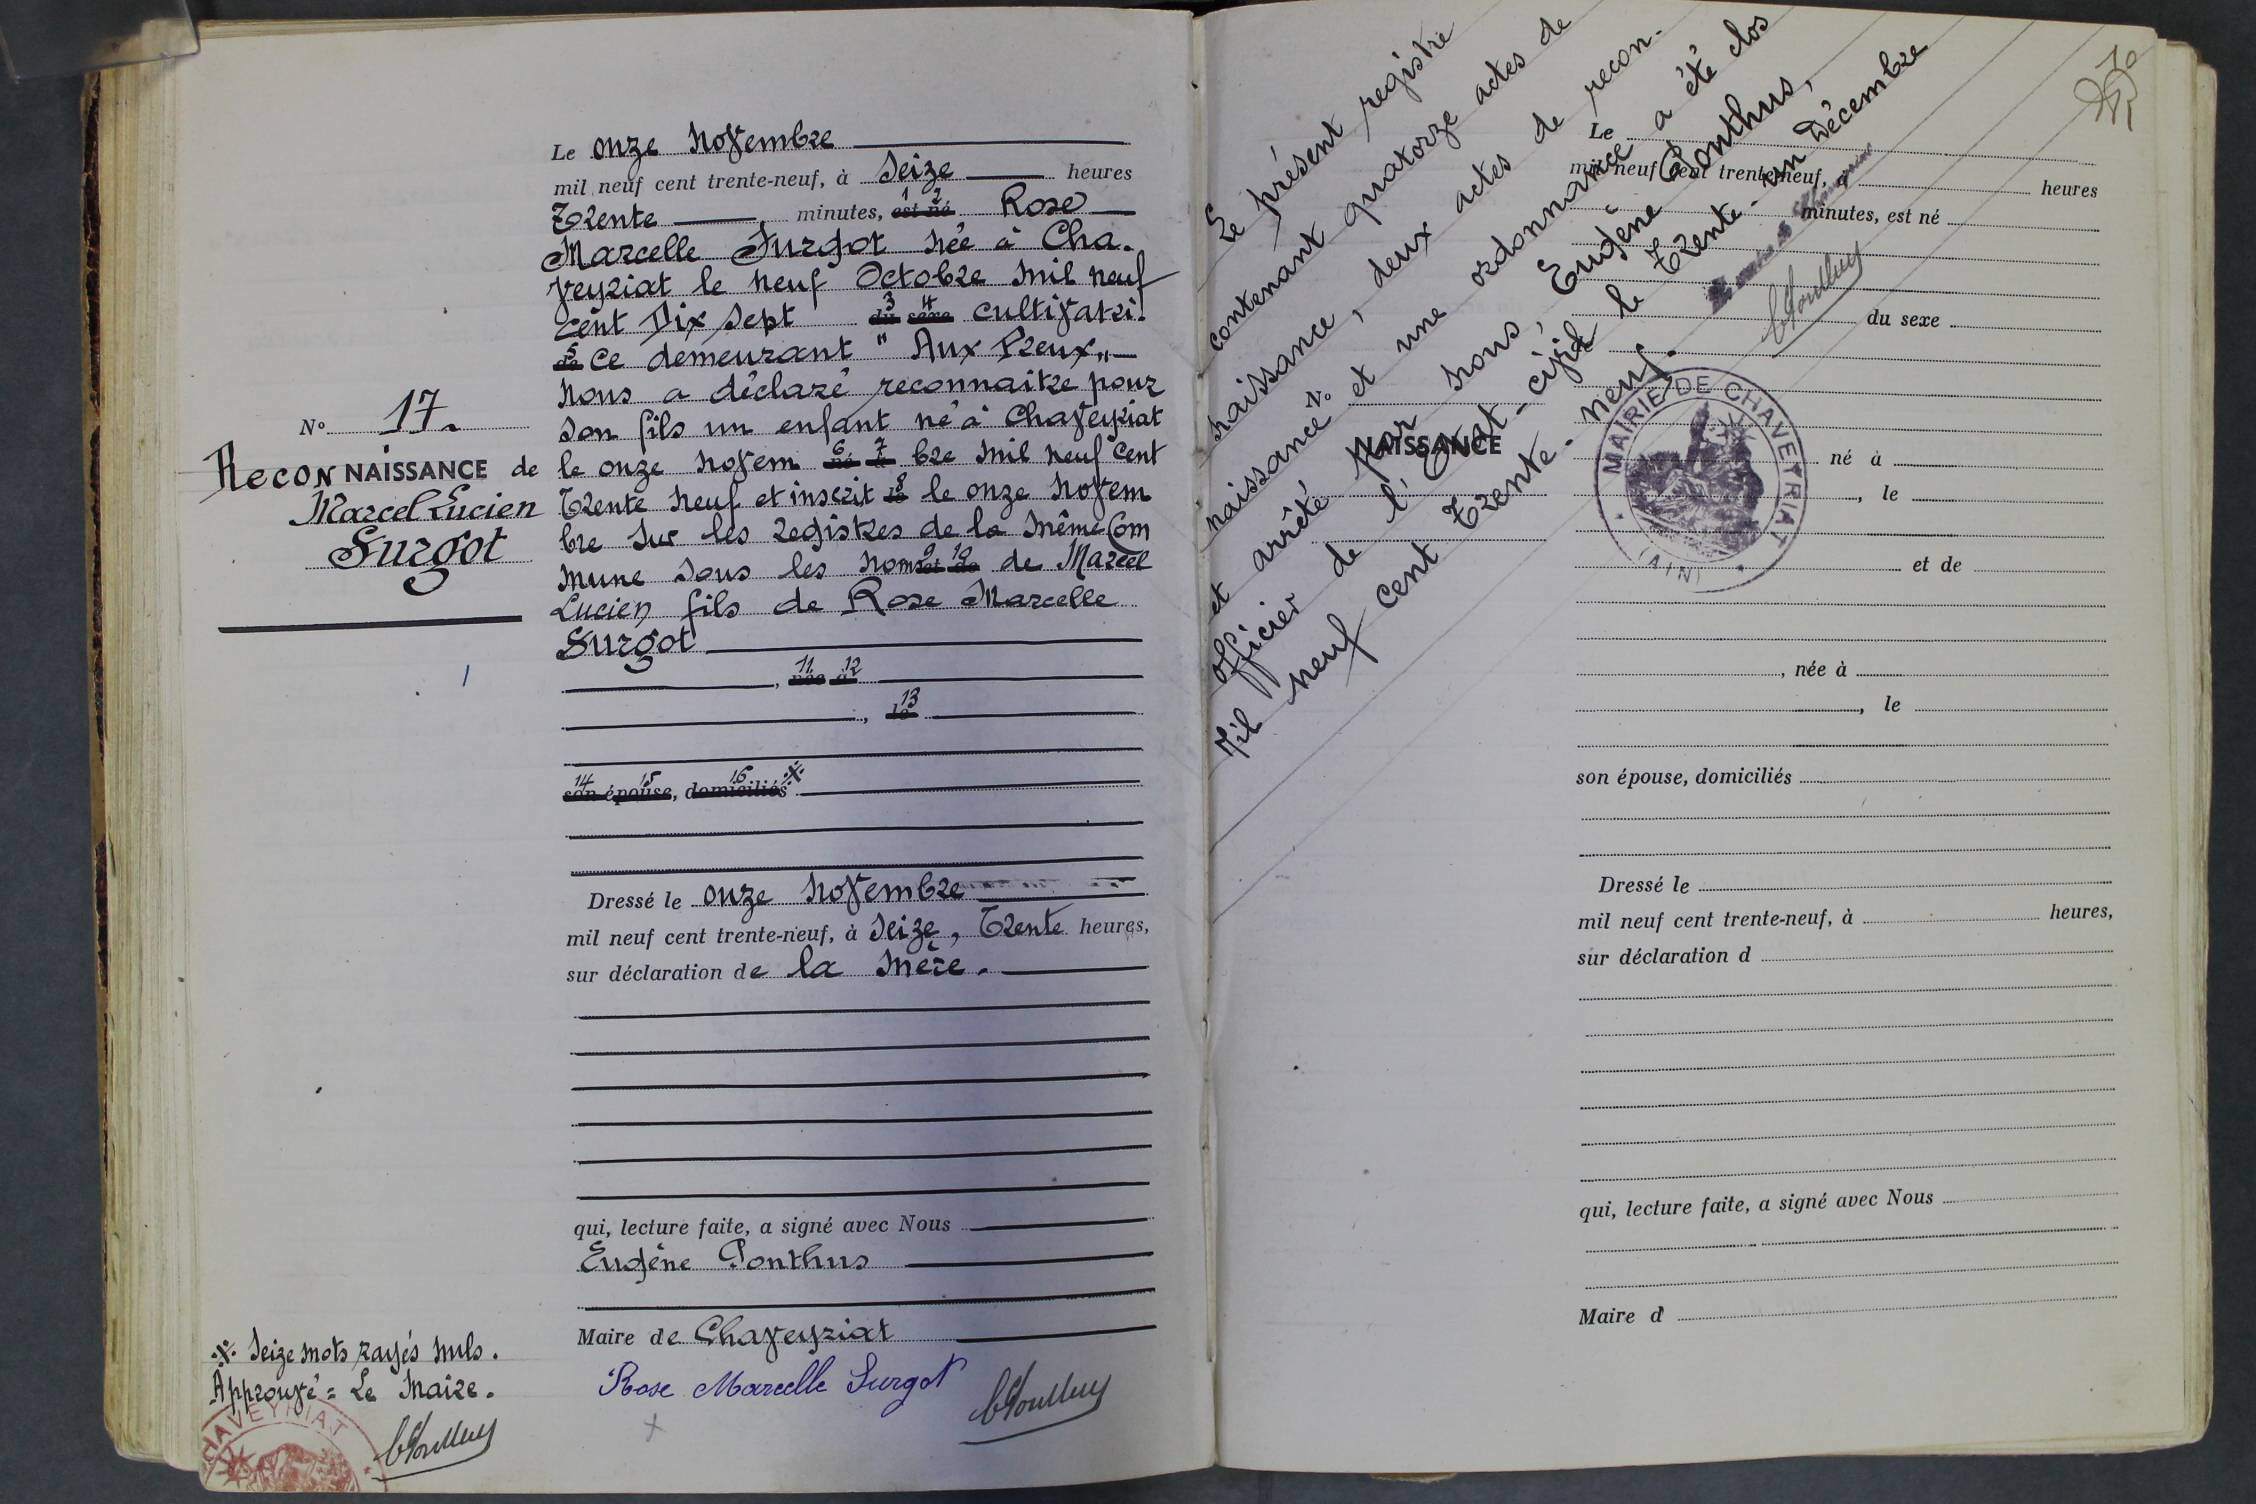 Le onze Novembre
mil neuf cent trente-neuf, à Seize heures
Trente minutes, est né Rose
1 2
Marcelle Surgot née à Cha-
veyriat le neuf Octobre mil neuf
cent Dix sept du sexe cultivatri-
3 4
5
de ce demeurant "Aux Preux"
Nous a déclaré reconnaitre pour
son fils un enfant né à Chaveyriat
le onze Novem né à bre mil neuf cent
6 7
Trente neuf et inscrit le le onze Novem
8
bre sur les registres de la même Com
mune sous les noms et de de Marcel
9 10
Lucien fils de Rose Marcelle
Surgot
11 12
, née à
13
, le
14 15 16
son épouse, domiciliés ⁜
Dressé le onze Novembre
mil neuf cent trente-neuf, à Seize, Trente heures,
sur déclaration de la mère.
qui, lecture faite, a signé avec Nous
Eugène Ponthus
Maire de Chaveyriat
Rose Marcelle Surgot
N° 17.
Recon NAISSANCE de
Marcel Lucien
Surgot
⁜ Seize mots rayés nuls.
Approuvé = Le Maire.
CHAVEYRIAT
Le présent registre
contenant quatorze actes de
naissance, deux actes de recon-
naissance et une ordonnance a été clos
et arrêté par nous, Eugène Ponthus,
officier de l'Etat-civil le Trente-un Décembre
Mil neuf cent Trente-neuf.
Le
mil neuf cent trente-neuf, à heures
minutes, est né
du sexe
N°
NAISSANCE
né à
, le
et de
, née à
, le
son épouse, domiciliés
Dressé le
mil neuf cent trente-neuf, à heures,
sur déclaration d
qui, lecture faite, a signé avec Nous
Maire d
MAIRIE DE CHAVEYRIAT
(AIN)